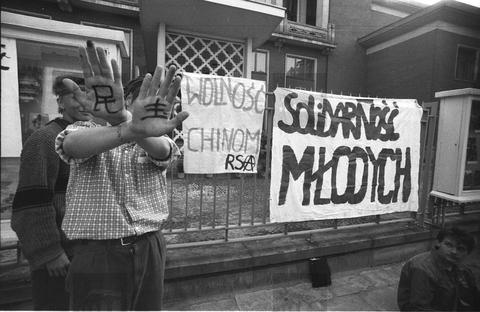 民主
WOLNOŚĆ
CHINOM
RSA
SOLiDARNOŚĆ
MŁODYCH